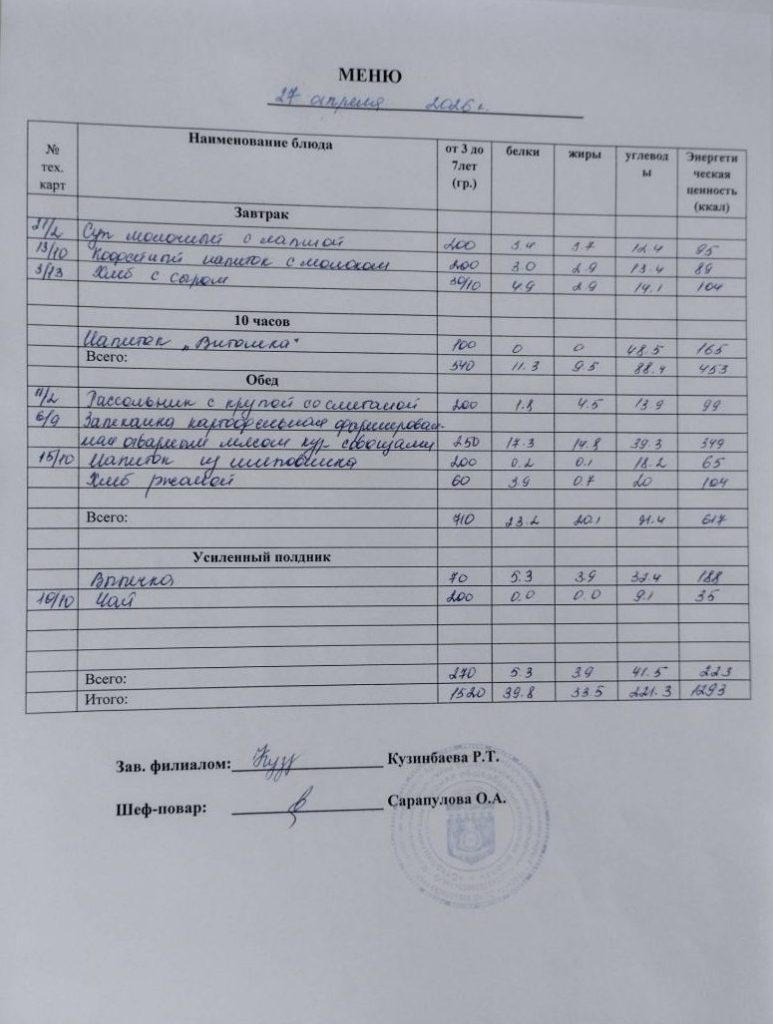 МЕНЮ
27 апреля 2026 г.
№ тех. карт Наименование блюда от 3 до 7лет (гр.) белки жиры углеводы Энергетическая ценность (ккал)
Завтрак
21/2 Суп молочный с лапшой 200 3.4 3.7 12.4 95
13/10 Кофейный напиток с молоком 200 3.0 2.9 13.4 89
3/13 Хлеб с сыром 30/10 4.9 2.9 14.1 104
10 часов
Напиток „Витошка" 100 0 0 48.5 165
Всего: 540 11.3 9.5 88.4 453
Обед
11/2 Рассольник с крупой со сметаной 200 1.8 4.5 13.9 99
6/9 Запеканка картофельная фарширован-
ная отварным мясом кур с овощами 250 17.3 14.8 39.3 349
15/10 Напиток из шиповника 200 0.2 0.1 18.2 65
Хлеб ржаной 60 3.9 0.7 20 104
Всего: 710 23.2 20.1 91.4 617
Усиленный полдник
Выпечка 70 5.3 3.9 32.4 188
10/10 Чай 200 0.0 0.0 9.1 35
Всего: 270 5.3 3.9 41.5 223
Итого: 1520 39.8 33.5 221.3 1293
Зав. филиалом: Кузинбаева Р.Т.
Шеф-повар: Сарапулова О.А.